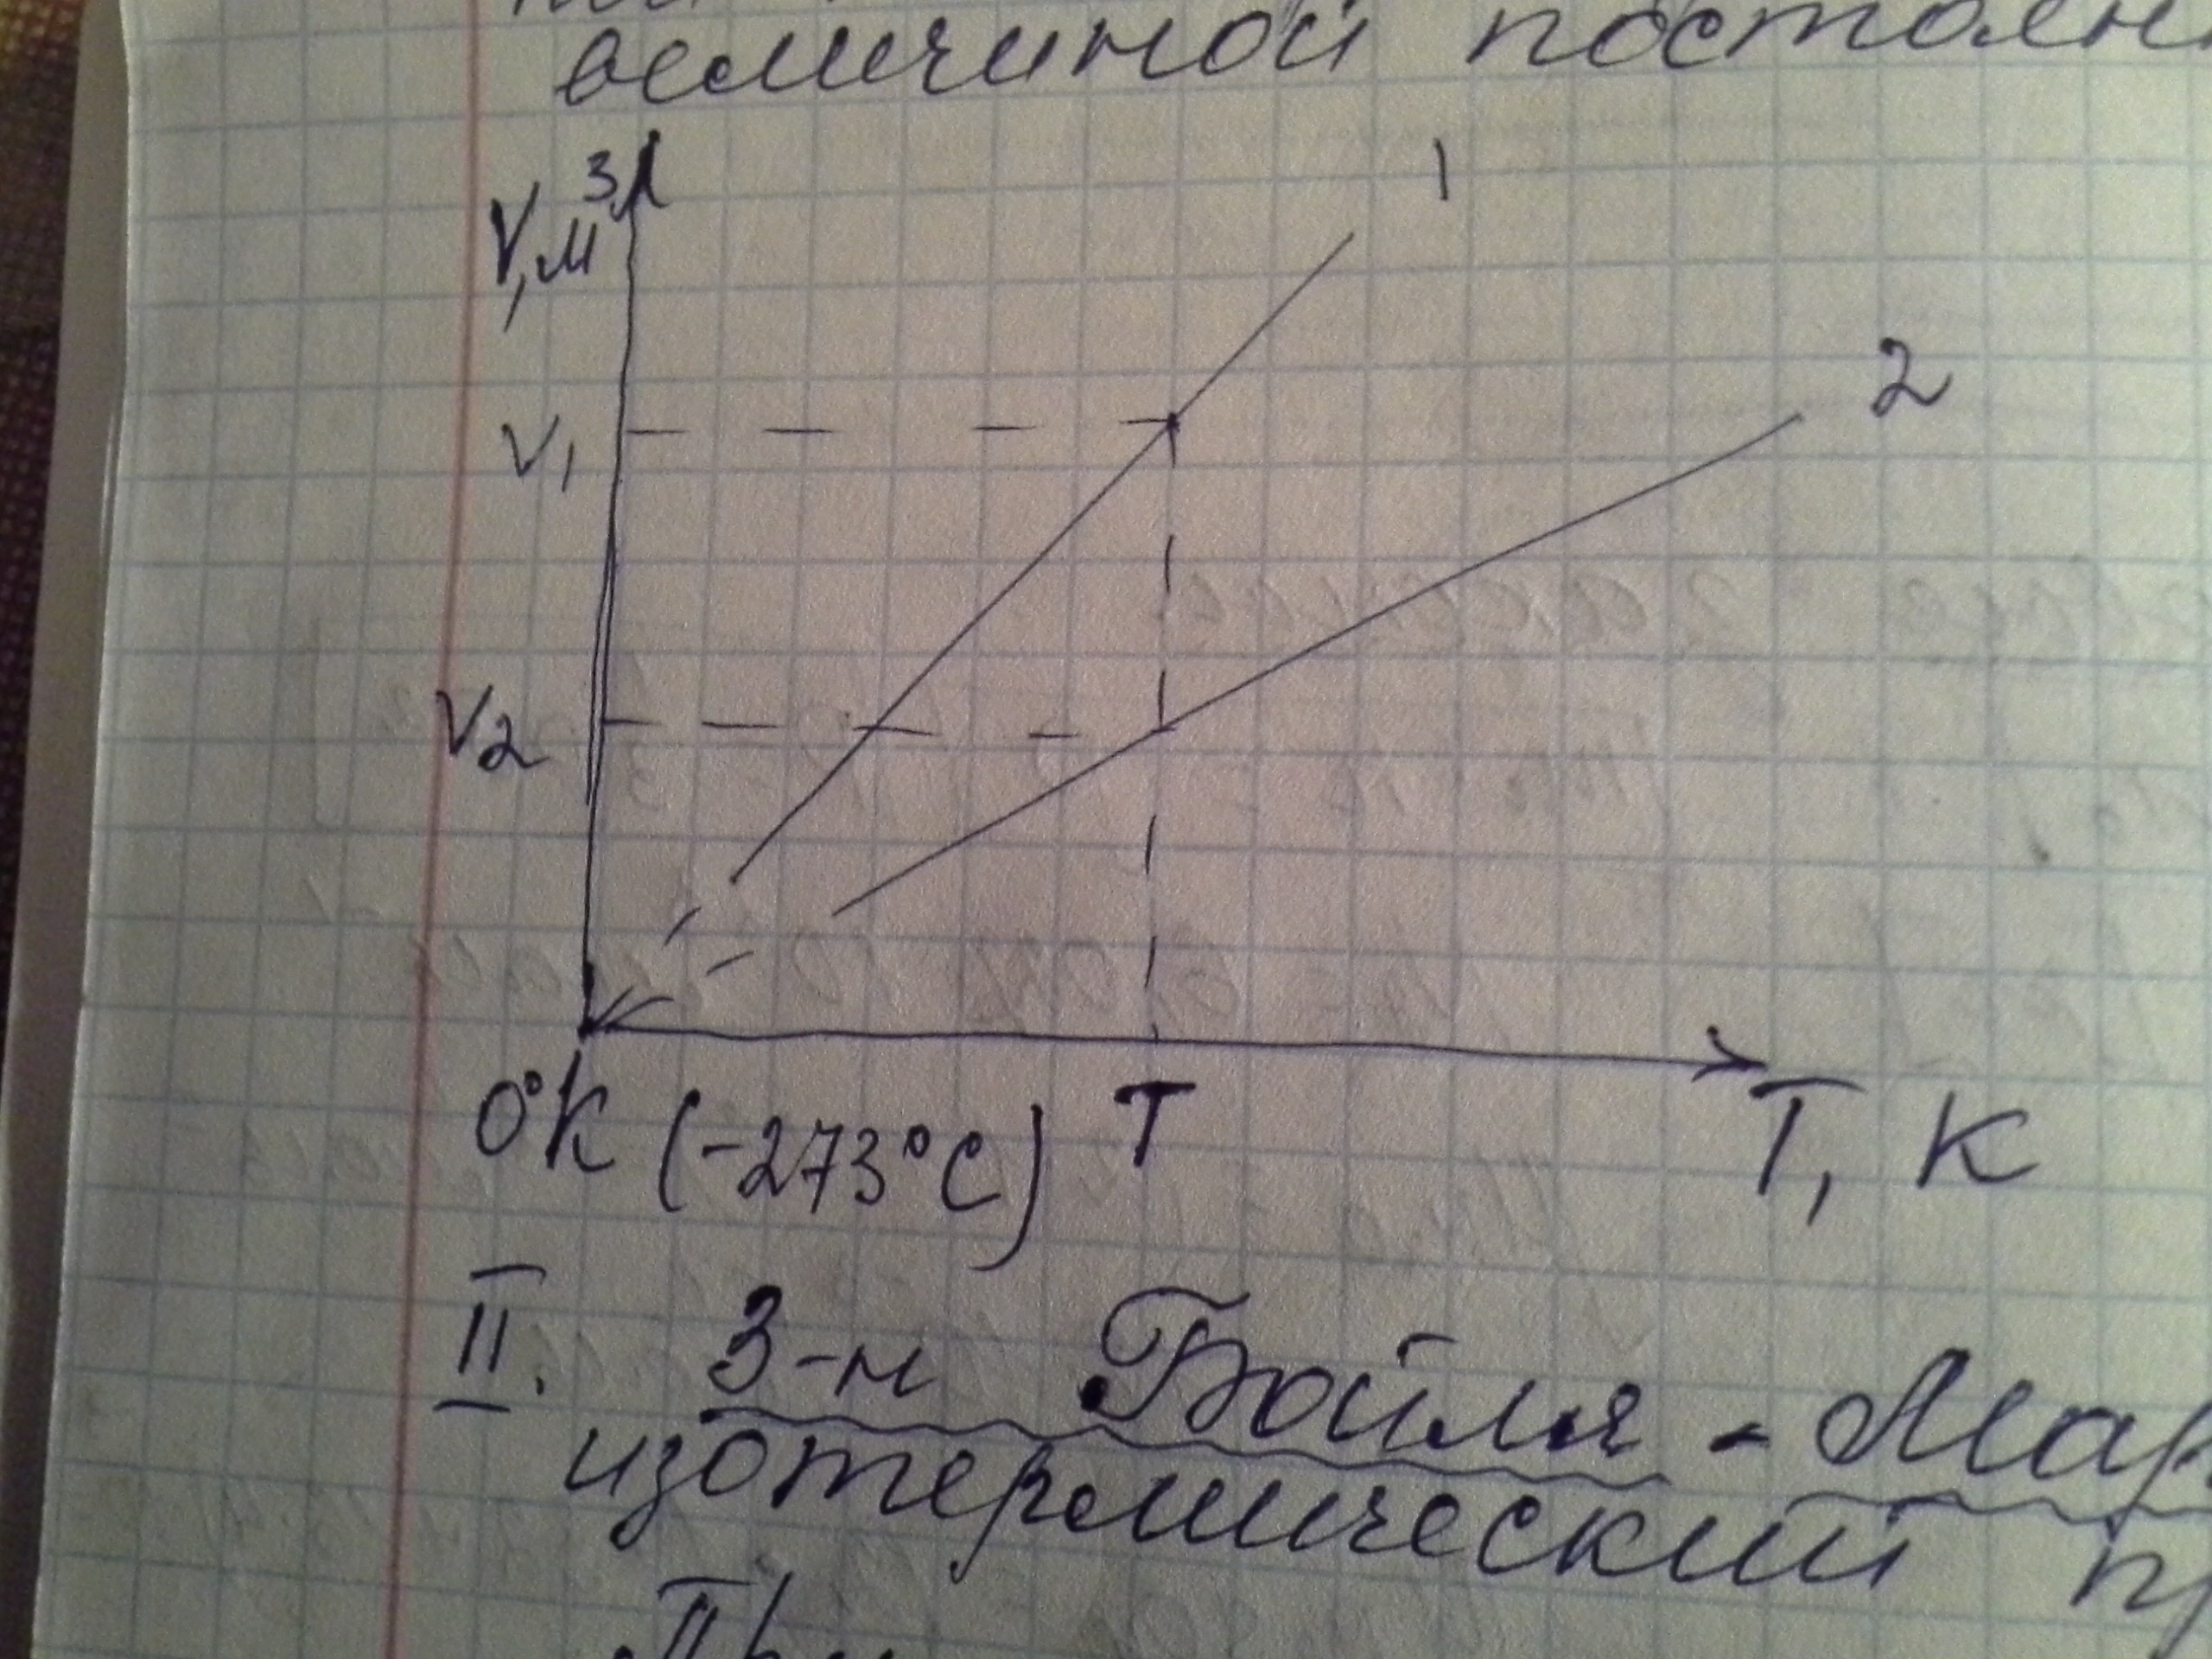 величиной
V, м³
1
2
V₁
V₂
0°К (-273°С) T T, К
II. З-н Бойля - Мар
изотермический п